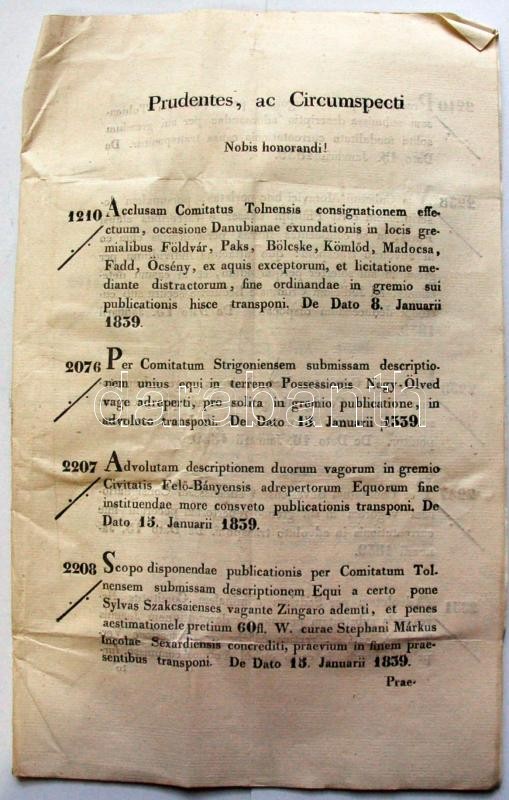 Prudentes, ac Circumspecti
Nobis honorandi!
1210 Acclusam Comitatus Tolnensis consignationem effe-
ctuum, occasione Danubianae exundationis in locis gre-
mialibus Földvár, Paks, Bölcske, Kömlőd, Madocsa,
Fadd, Öcsény, ex aquis exceptorum, et licitatione me-
diante distractorum, fine ordinandae in gremio sui
publicationis hisce transponi. De Dato 8. Januarii
1839.
2076 Per Comitatum Strigoniensem submissam descriptio-
nem unius equi in terreno Possessionis Nagy-Ölved
vage adreperti, pro solita in gremio publicatione, in
advoluto transponi. De Dato 15. Januarii 1839.
darabanth
2207 Advolutam descriptionem duorum vagorum in gremio
Civitatis Felő-Bányensis adrepertorum Equorum fine
instituendae more consveto publicationis transponi. De
Dato 15. Januarii 1839.
2208 Scopo disponendae publicationis per Comitatum Tol-
nensem submissam descriptionem Equi a certo pone
Sylvas Szakcsaienses vagante Zingaro ademti, et penes
aestimationele pretium 60fl. W. curae Stephani Márkus
Incolae Sexardiensis concrediti, praevium in finem prae-
sentibus transponi. De Dato 15. Januarii 1839.
Prae-